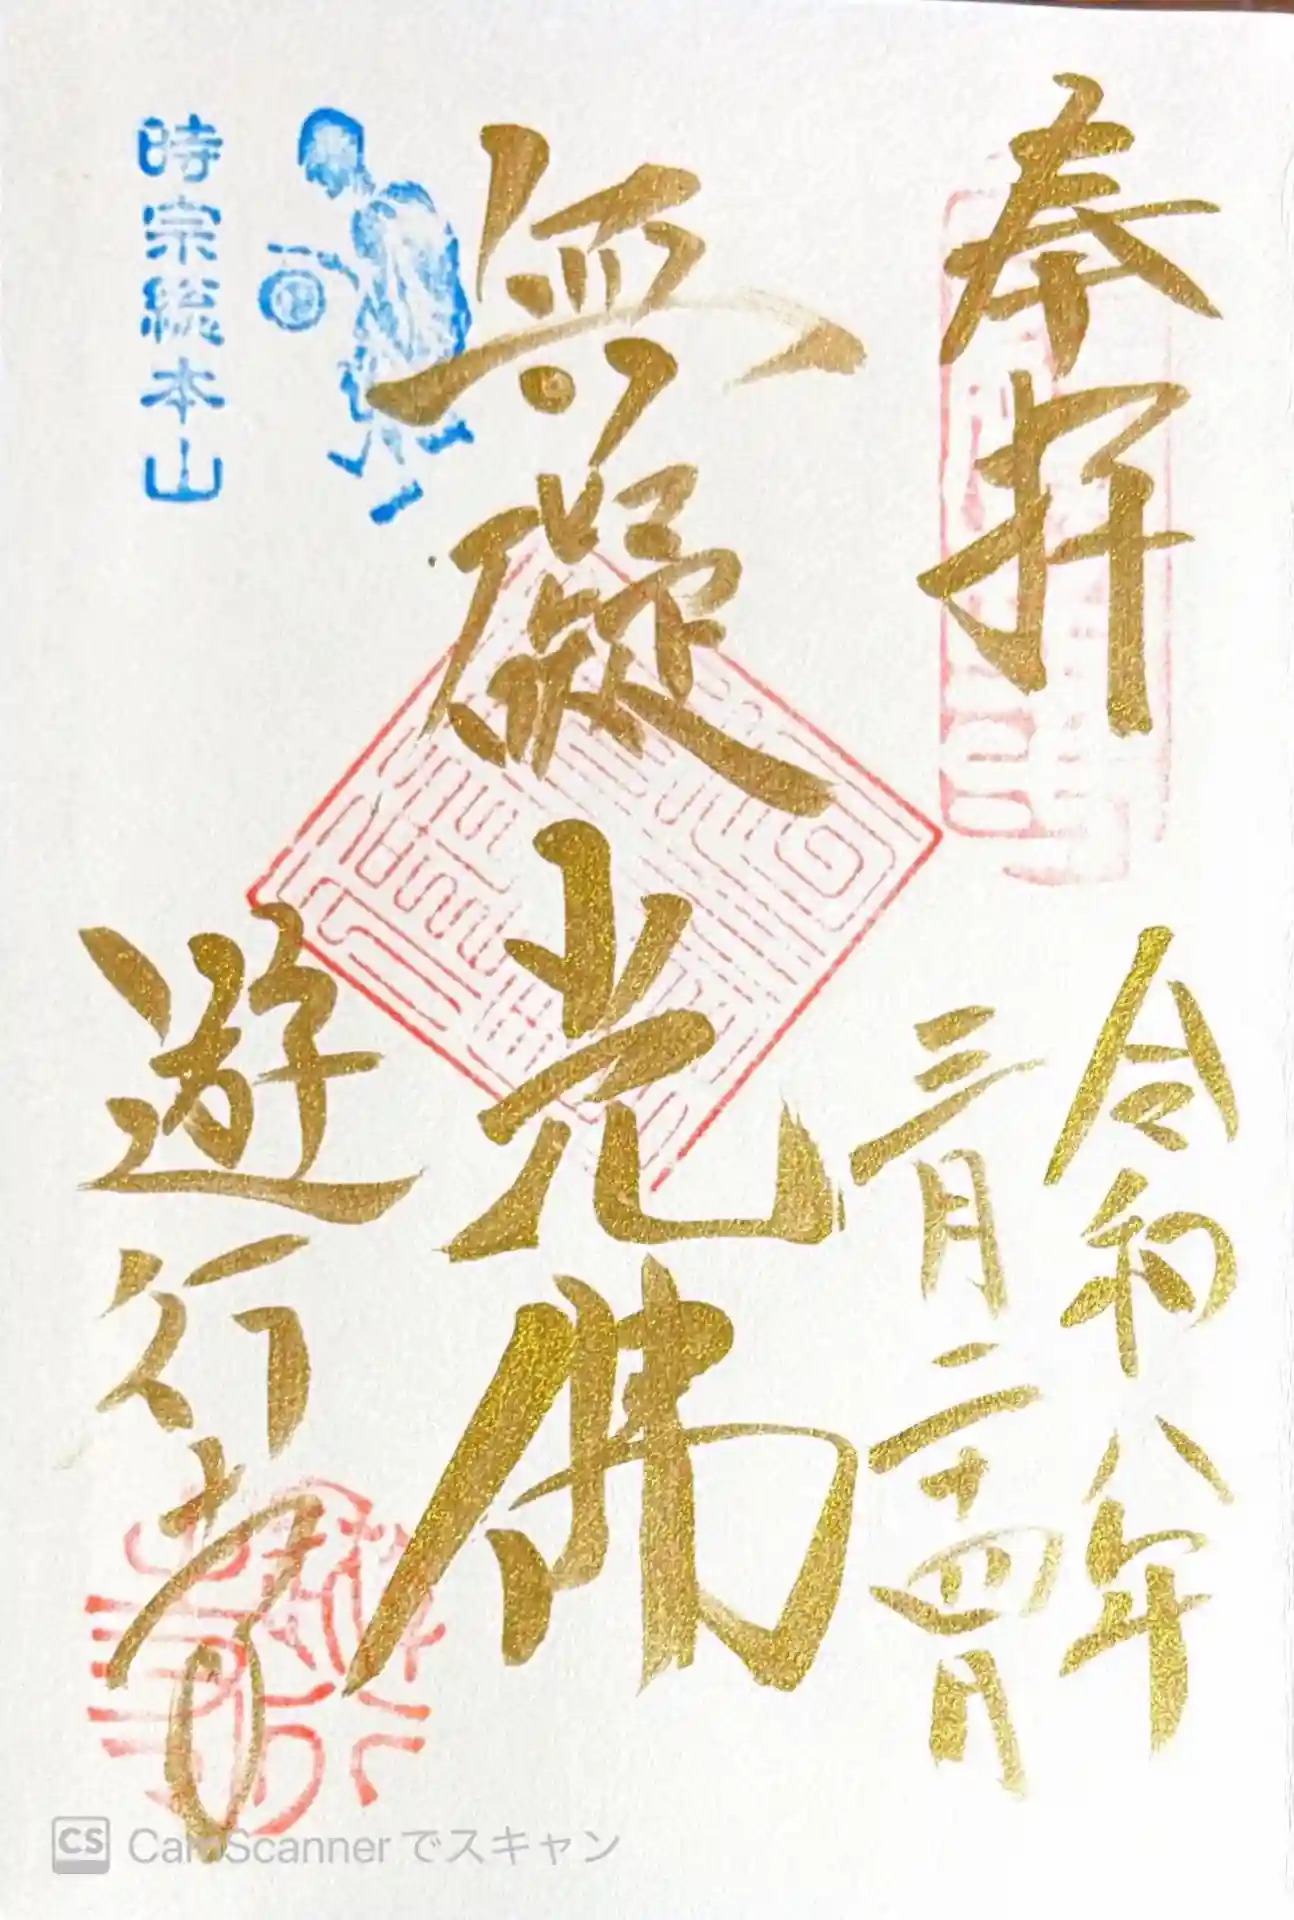 奉拝
令和八年
三月二十四日
無礙光佛
遊行寺
時宗総本山
CS CamScanner でスキャン